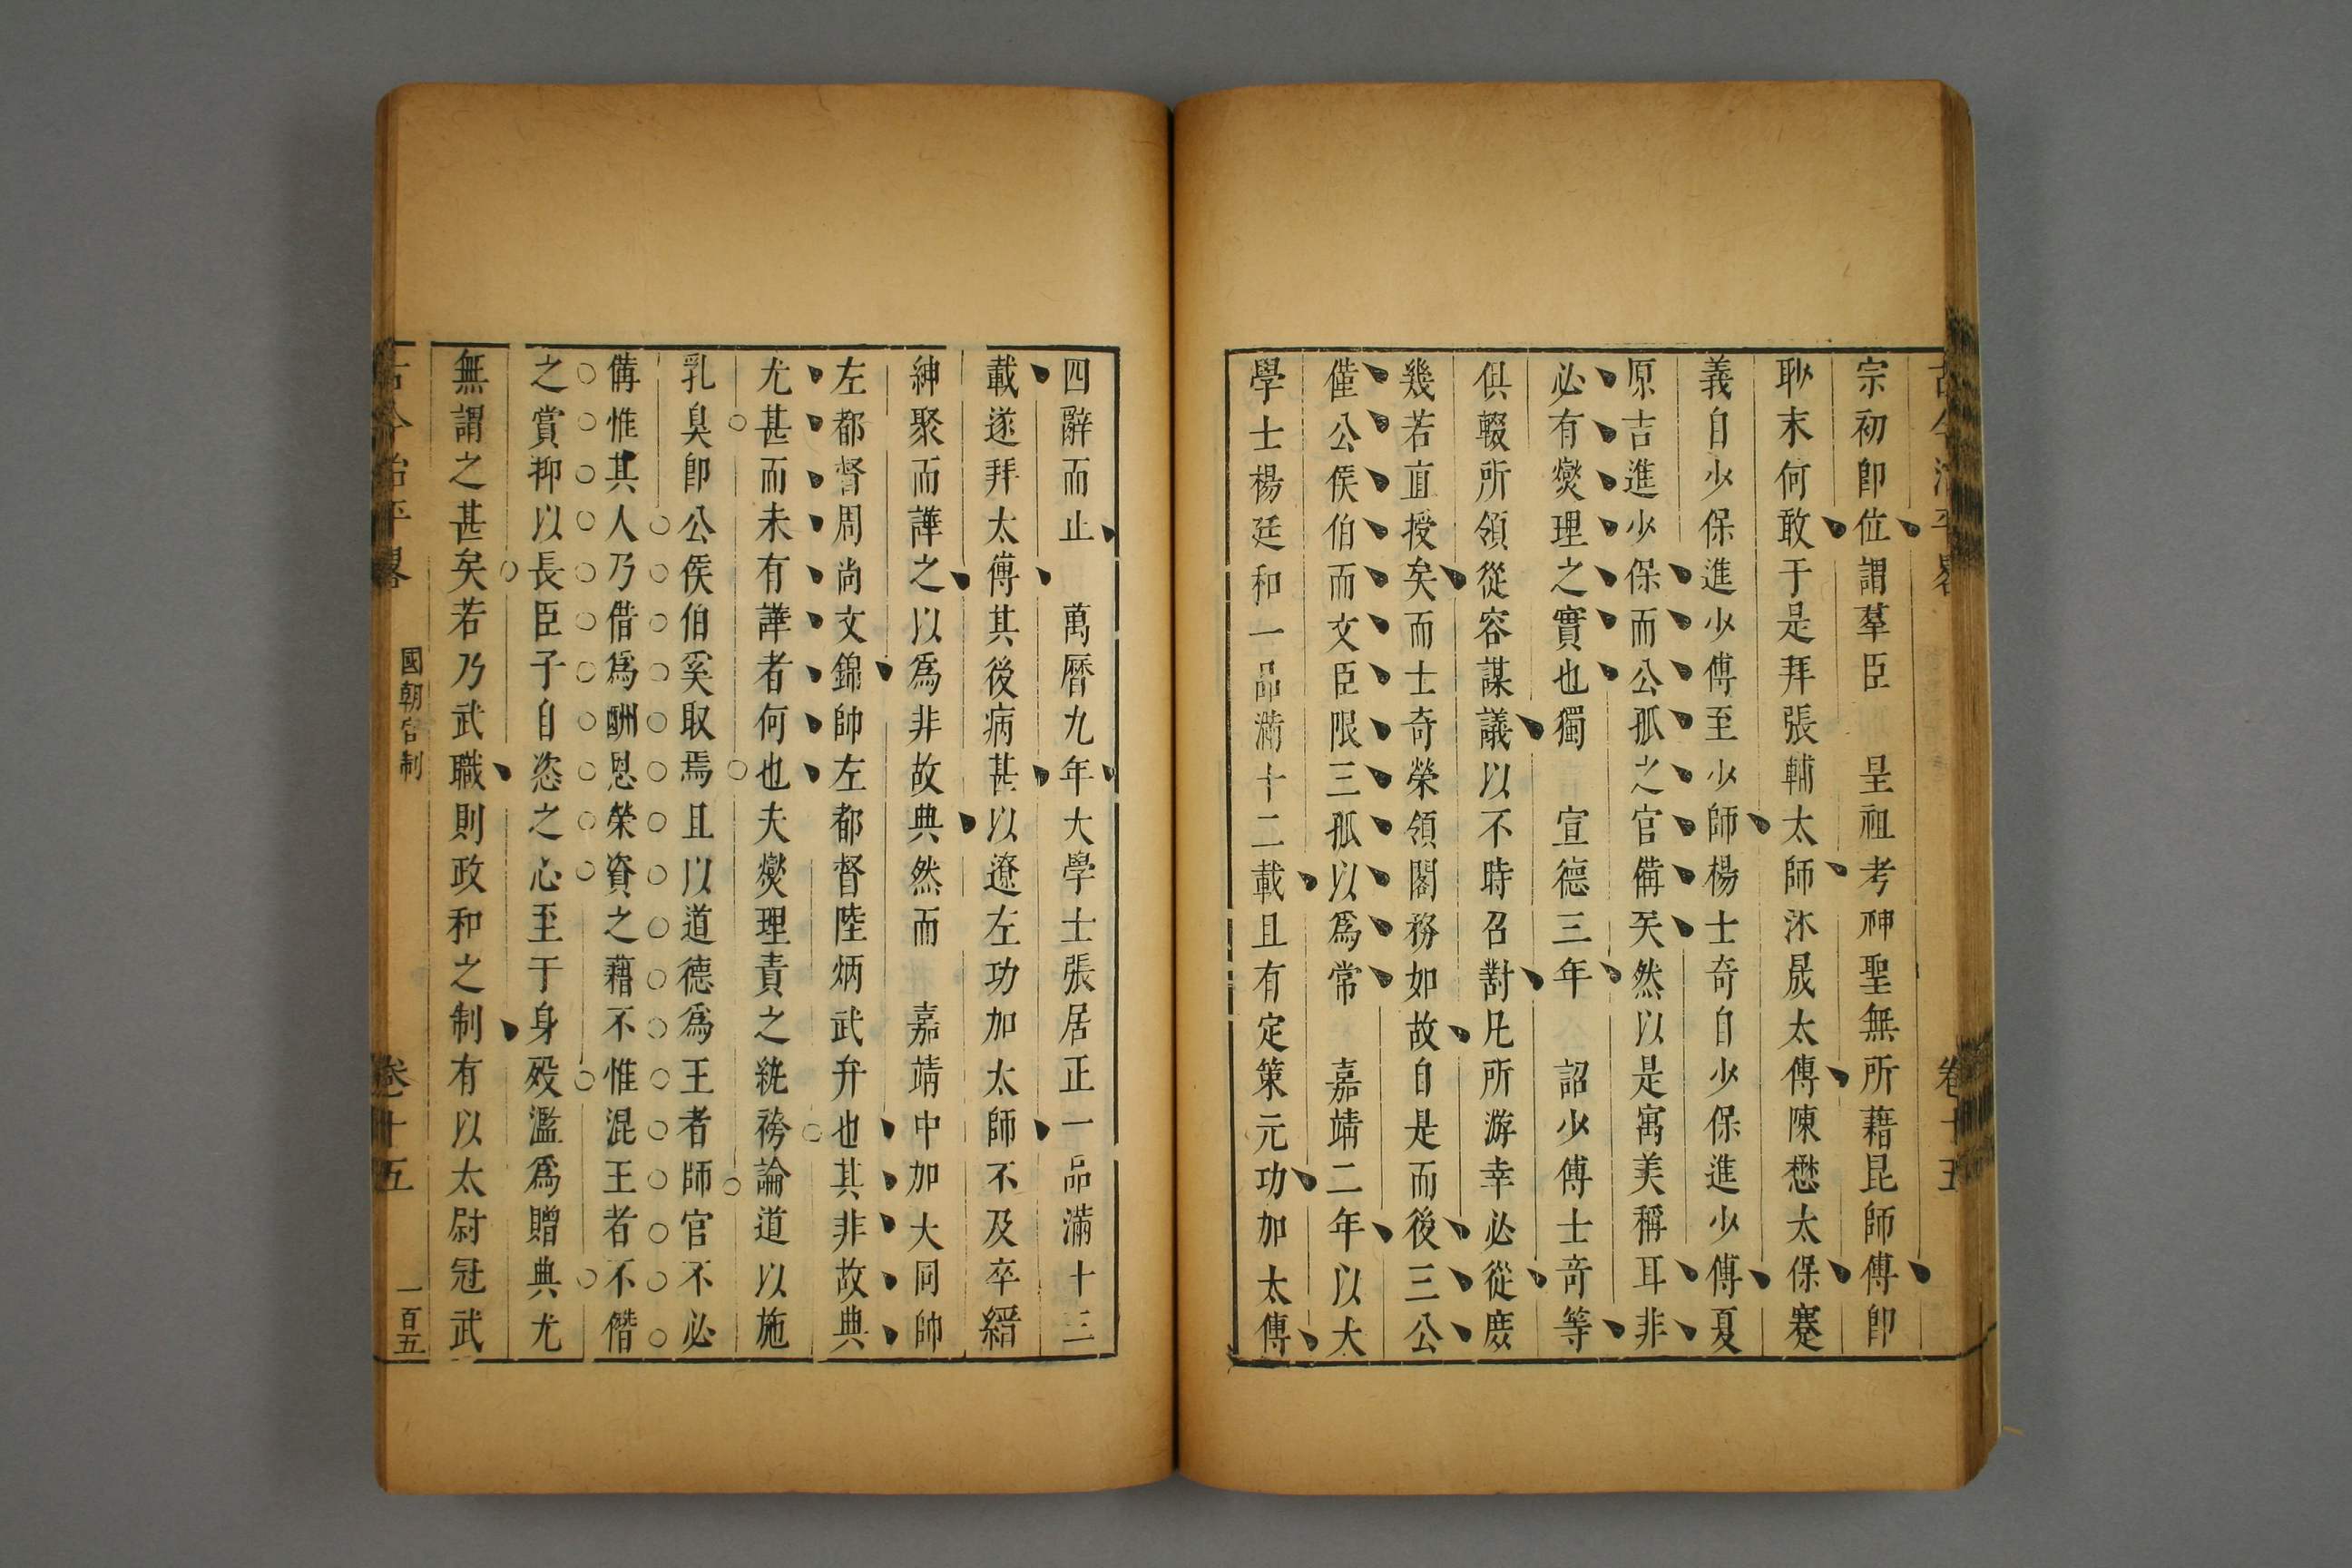 古今治平畧 卷十五
宗初卽位謂羣臣 皇祖考神聖無所藉毘師傅卽
眇末何敢于是拜張輔太師沐晟太傅陳懋太保蹇
義自少保進少傅至少師楊士奇自少保進少傅夏
原吉進少保而公孤之官備矣然以是寓美稱耳非
必有燮理之實也獨 宣德三年 詔少傅士奇等
俱輟所領從容謀議以不時召對凡所游幸必從庶
幾若直授矣而士奇榮領閣務如故自是而後三公
僅公侯伯而文臣限三孤以爲常 嘉靖二年以大
學士楊廷和一品滿十二載且有定策元功加太傅
四辭而止 萬曆九年大學士張居正一品滿十二
載遂拜太傅其後病甚以遼左功加太師不及卒縉
紳聚而譁之以爲非故典然而 嘉靖中加大同帥
左都督周尚文錦帥左都督陸炳武弁也其非故典
尤甚而未有譁者何也夫燮理責之統袴論道以施
乳臭卽公侯伯奚取焉且以道德爲王者師官不必
備惟其人乃借爲酬恩榮資之藉不惟混王者不僭
之賞抑以長臣子自恣之心至于身歿濫爲贈典尤
無謂之甚矣若乃武職則政和之制有以太尉冠武
古今治平畧 國朝官制 卷十五 一百五